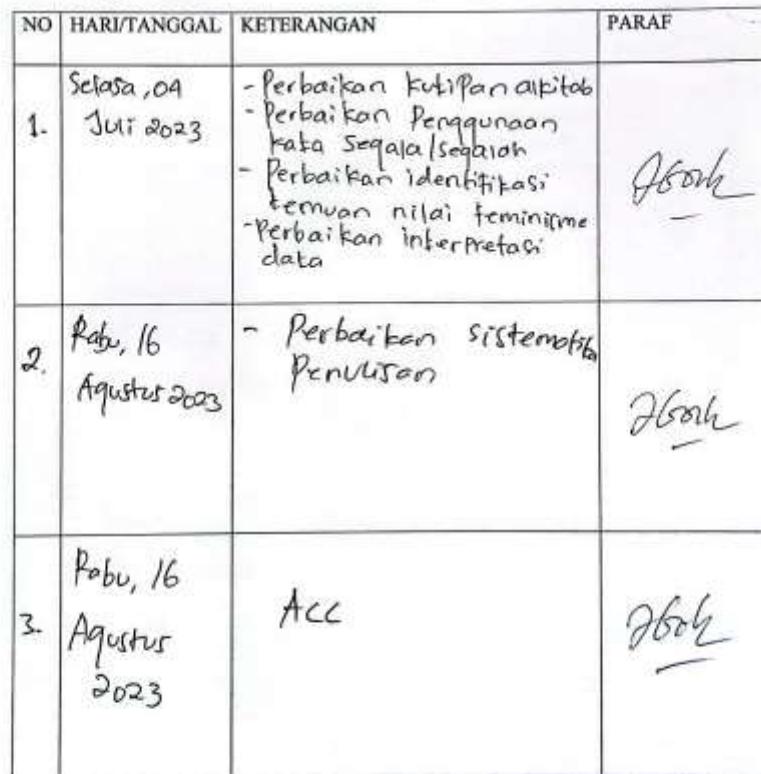 NO HARI/TANGGAL KETERANGAN PARAF
1.
Selasa, 04
Juli 2023
- Perbaikan kutipan alkitab
- Perbaikan Penggunaan
kata Segala/segalah
- Perbaikan identifikasi
temuan nilai feminisme
- Perbaikan interpretasi
data
2.
Rabu, 16
Agustus 2023
- Perbaikan sistematika
Penulisan
3.
Rabu, 16
Agustus
2023
ACC